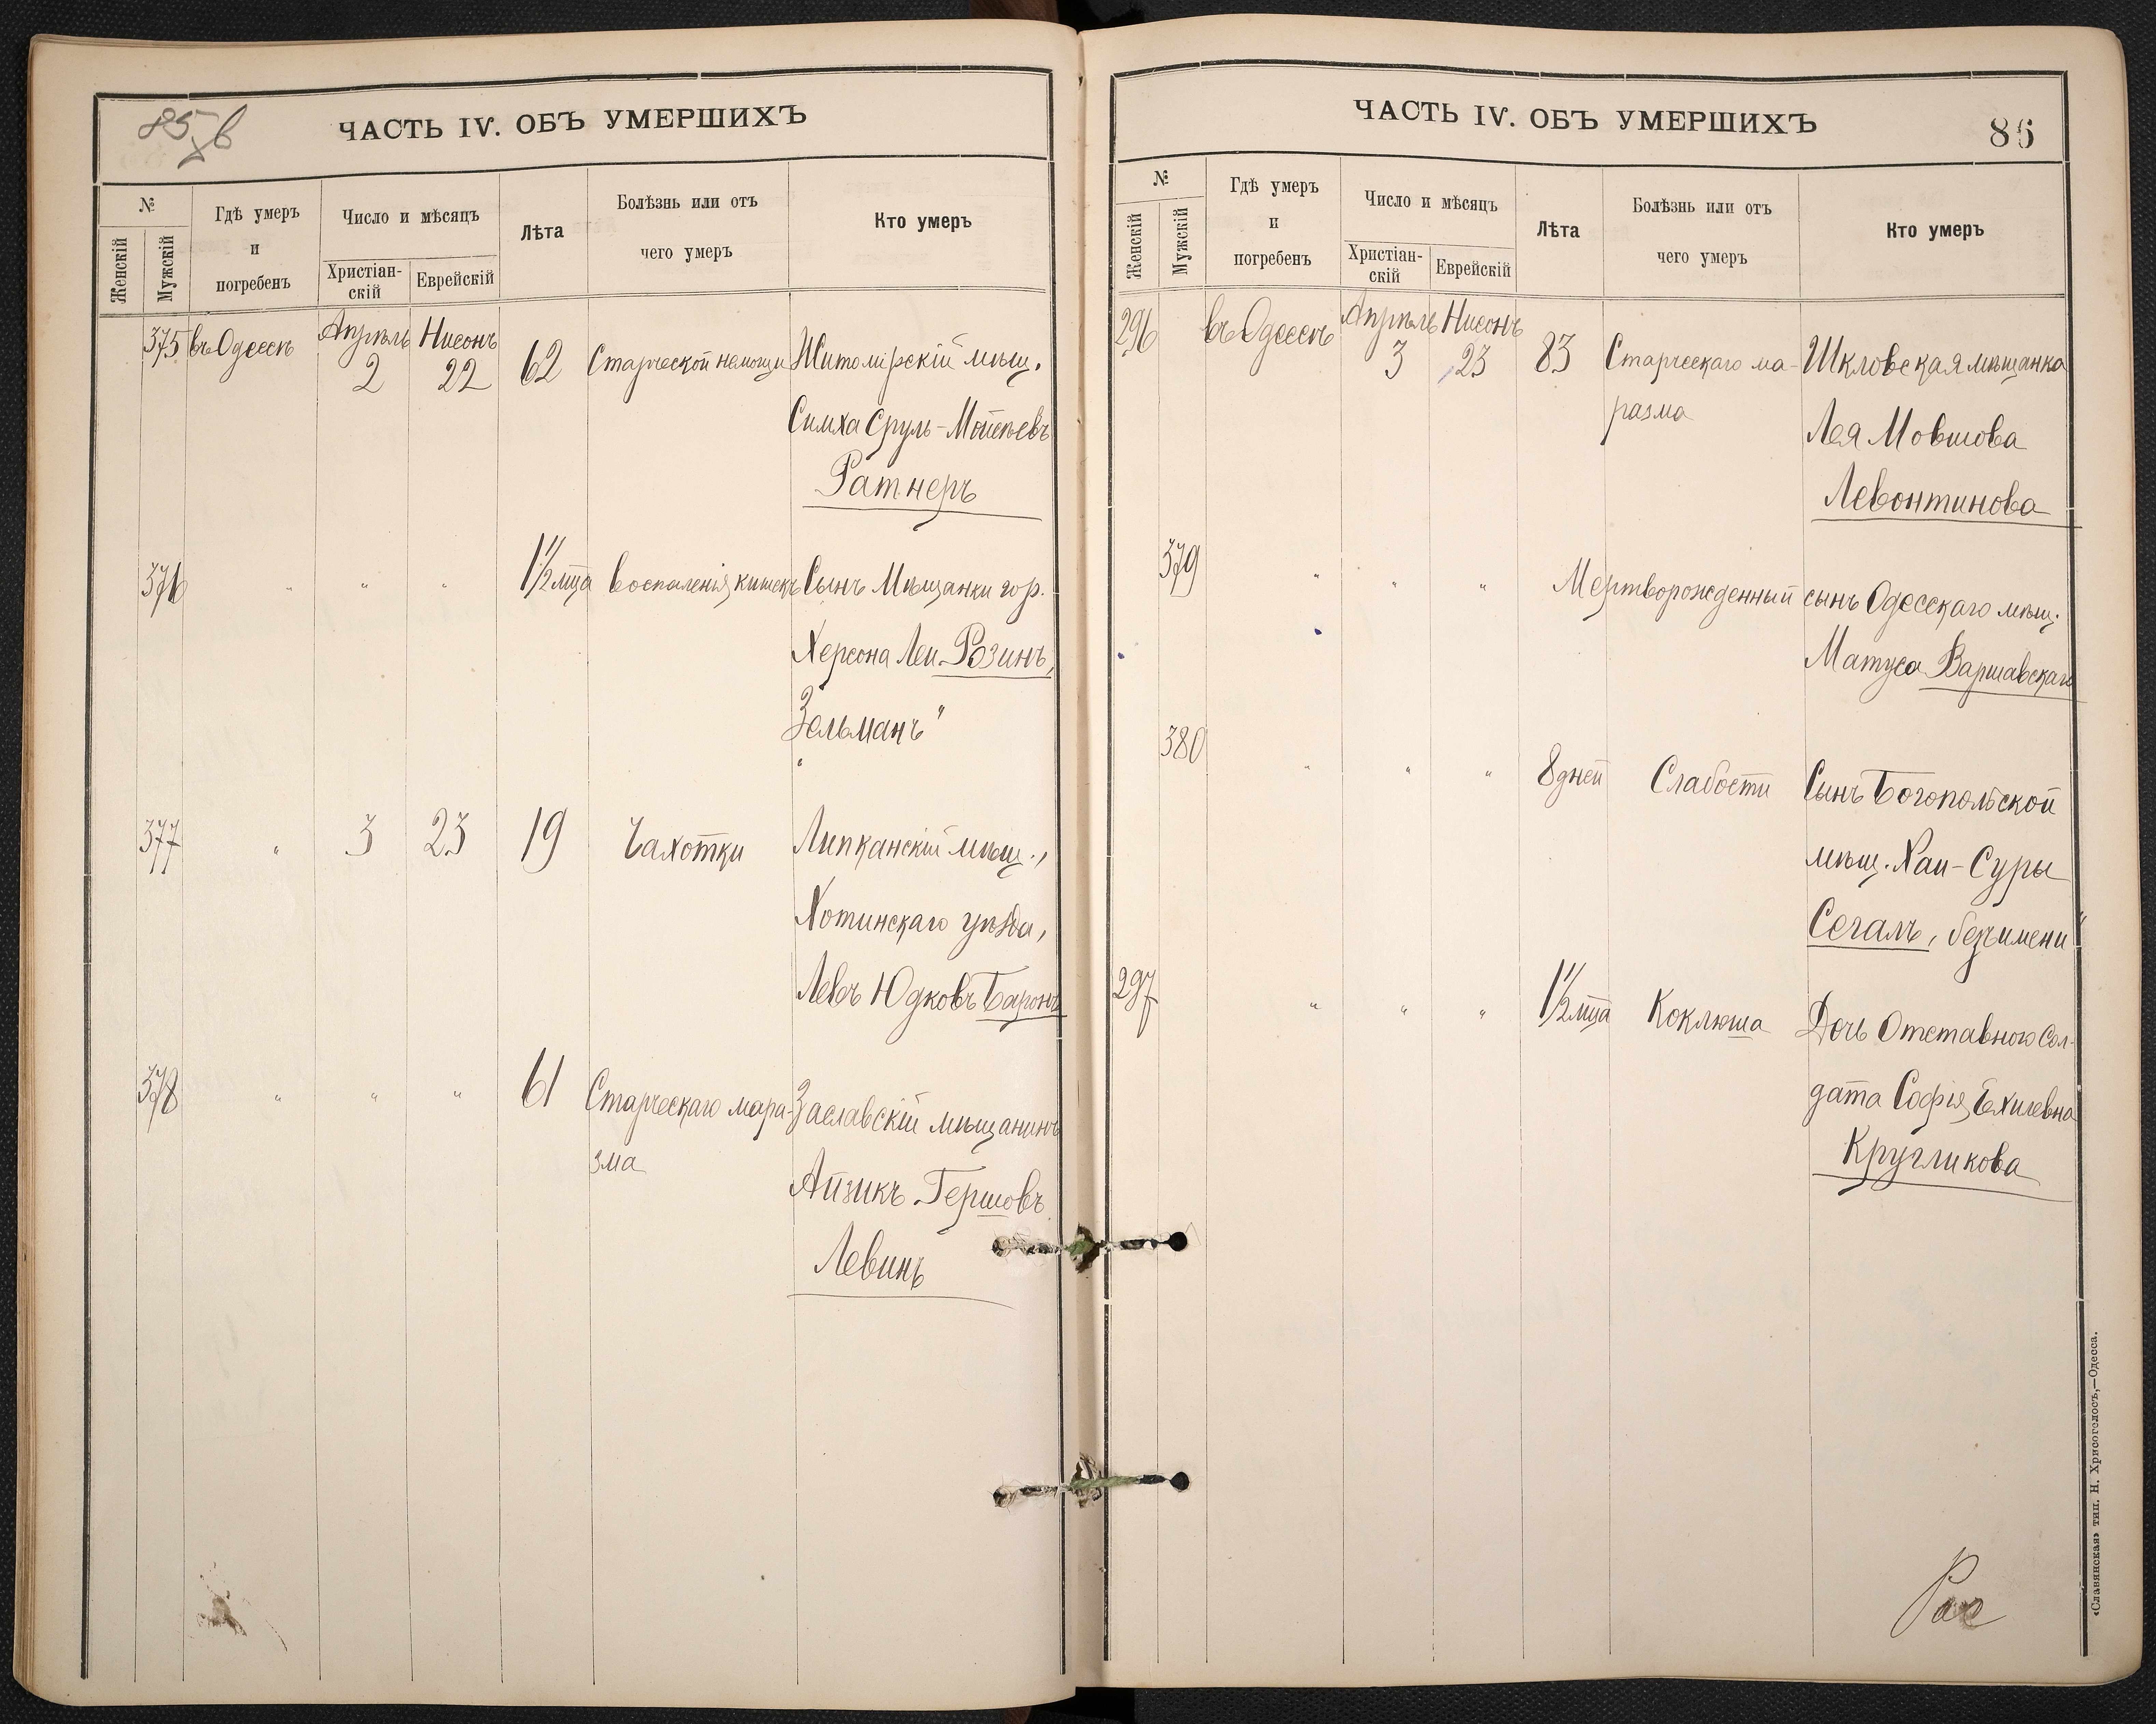 85 в
ЧАСТЬ IV. ОБЪ УМЕРШИХЪ
№
Женскій
Мужскій
Гдѣ умеръ
и
погребенъ
Число и мѣсяцъ
Христіан-
скій
Еврейскій
Лѣта
Болѣзнь или отъ
чего умеръ
Кто умеръ
375 въ Одессѣ Апрѣль 2 Нисонъ 22 62 Старческой немощи Житомірскій мѣщ.
Симха Сруль-Мойсѣевъ
Ратнеръ
376 " " " 1 1/2 мца Воспаленія кишекъ Сынъ Мѣщанки гор.
Херсона Леи Розинъ,
Зельманъ"
377 " 3 23 19 Чахотки Липканскій мѣщ.,
Хотинскаго уѣзда,
Левъ Юдковъ Баронъ
378 " " " 61 Старческаго мара- Заславскій мѣщанинъ
зма
Айзикъ Гершовъ
Левинъ
ЧАСТЬ IV. ОБЪ УМЕРШИХЪ
86
№
Женскій
Мужскій
Гдѣ умеръ
и
погребенъ
Число и мѣсяцъ
Христіан-
скій
Еврейскій
Лѣта
Болѣзнь или отъ
чего умеръ
Кто умеръ
296 въ Одессѣ Апрѣль 3 Нисонъ 23 83 Старческаго ма- Шкловская мѣщанка
разма Лея Мовшова
Левонтинова
379 " " " Мертворожденный сынъ Одесскаго мѣщ.
Матуса Варшавскаго
380 " " " 8 дней Слабости Сынъ Богопольской
мѣщ. Хаи-Суры
Сегаль, безъ имени"
297 " " " 1 1/2 мца Коклюша Дочь Отставного Сол-
дата Софія Ехилевна
Кругликова
Рас
«Славянская» тип. Н. Хрисогелосъ,—Одесса.